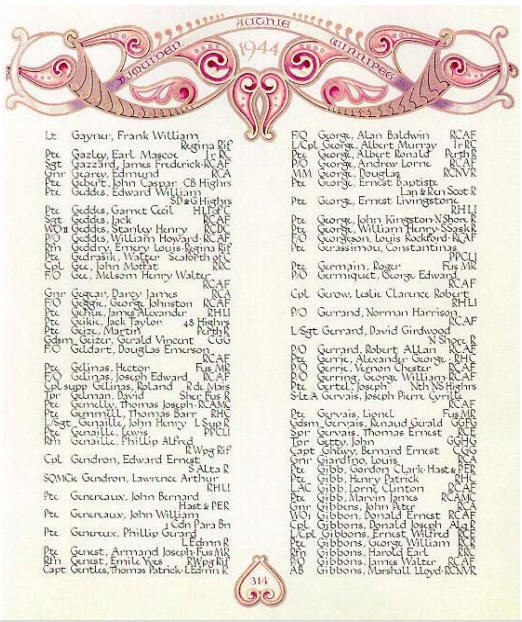 AUTHIE
IJMUIDEN 1944 WINNIPEG
Lt Gayner, Frank William
Regina Rif
Pte Gazley, Earl Mascoe Ir RC
Sgt Gazzard, James Frederick RCAF
Gnr Gearey, Edmund RCA
Pte Gebert, John Caspar CB Highrs
Pte Geddes, Edward William
SD&G Highrs
Pte Geddes, Garnet Cecil HLI of C
Sgt Geddes, Jack RCAF
WOII Geddes, Stanley Henry RCDC
P/O Geddes, William Howard RCAF
Rfn Geddry, Emery Louis Regina Rif
Pte Gedrasik, Walter Seaforth of C
Cpl Gee, John Moffat RRC
F/O Gee, Melsom Henry Walter
RCAF
Gnr Gegear, Darcy James RCA
F/O Geggie, George Johnston RCAF
Pte Gehue, James Alexander RHLI
Pte Geikie, Jack Taylor 48 Highrs
Pte Geize, Martin Perth R
Gdsm Geizer, Gerald Vincent CGG
F/O Geldart, Douglas Emerson
RCAF
Pte Gelinas, Hector Fus MR
F/O Gelinas, Joseph Edward RCAF
Cpl supp Gelinas, Roland R de Mais
Tpr Gelman, David Sher Fus R
Pte Gemelly, Thomas Joseph RCAMC
Pte Gemmell, Thomas Barr RHC
L/Sgt Genaille, John Henry L Sup R
Pte Genaille, Lewis PPCLI
Rfn Genaille, Phillip Alfred
R Wpg Rif
Cpl Gendron, Edward Ernest
S Alta R
SQMCie Gendron, Lawrence Arthur
RHLI
Pte Genereaux, John Bernard
Hast & PER
Pte Genereaux, John William
1 Cdn Para Bn
Pte Genereux, Phillip Gerard
L Edmn R
Pte Genest, Armand Joseph Fus MR
Rfn Genest, Emile Yves RWpg Rif
Capt Gentles, Thomas Patrick L Edmn R
F/O George, Alan Baldwin RCAF
L/Cpl George, Albert Murray Ir RC
Pte George, Albert Ronald Perth R
P/O George, Andrew Lorne RCAF
MM George, Douglas RCNVR
Pte George, Ernest Baptiste
Lan & Ren Scot R
Pte George, Ernest Livingstone
RHLI
Pte George, John Kingston N Shore R
Pte George, William Henry S Sask R
F/O Georgeson, Louis Rockford RCAF
Pte Gerassimou, Constantinas
PPCLI
Pte Germain, Roger Fus MR
P/O Germiquet, George Edward
RCAF
Cpl Gerow, Leslie Clarence Robert
RHLI
P/O Gerrand, Norman Harrison
RCAF
L/Sgt Gerrard, David Girdwood
N Shore R
P/O Gerrard, Robert Allan RCAF
Pte Gerrie, Alexander George RHC
P/O Gerrie, Vernon Chester RCAF
P/O Gerring, George William RCAF
Pte Gertel, Joseph Nth NS Highrs
S-Lt.A Gervais, Joseph Pierre Cyrille
RCAF
Pte Gervais, Lionel Fus MR
Gdsm Gervais, Renaud Gerald GGFG
Spr Gervais, Thomas Ernest RCE
Tpr Getty, John GGHG
Capt Ghewy, Bernard Ernest CGG
Gnr Giardino, Louis RCA
Pte Gibb, Gordon Clark Hast & PER
Pte Gibb, Henry Patrick RHC
LAC Gibb, Lorne Clinton RCAF
Pte Gibb, Marvin James RCAMC
Gnr Gibbens, John Peter RCA
WO1 Gibbons, Donald Ernest RCAF
Cpl Gibbons, Donald Joseph Alq R
L/Cpl Gibbons, Ernest Wilfred RCE
Pte Gibbons, George William RCR
Rfn Gibbons, Harold Earl RRC
P/O Gibbons, James Walter RCAF
AB Gibbons, Marshall Lloyd RCNVR
314